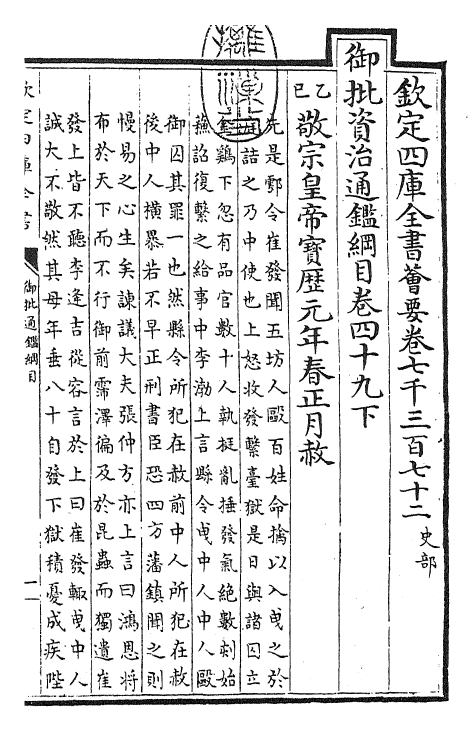 欽定四庫全書薈要卷七千三百七十二 史部
御批資治通鑑綱目卷四十九下
乙巳 敬宗皇帝寶歴元年春正月赦
先是鄠令崔發聞五坊人毆百姓命擒以入曳之於
庭詰之乃中使也上怒收發繫臺獄是日與諸囚立
金鷄下忽有品官數十人執梃亂捶發氣絶數刻始
蘇詔復繫之給事中李渤上言縣令曳中人中人毆
御囚其罪一也然縣令所犯在赦前中人所犯在赦
後中人横暴若不早正刑書臣恐四方藩鎮聞之則
慢易之心生矣諫議大夫張仲方亦上言曰鴻恩将
布於天下而不行御前霈澤徧及於昆蟲而獨遺崔
發上皆不聽李逢吉從容言於上曰崔發輙曳中人
誠大不敬然其母年垂八十自發下獄積憂成疾陛
欽定四庫全書
御批通鑑綱目
一